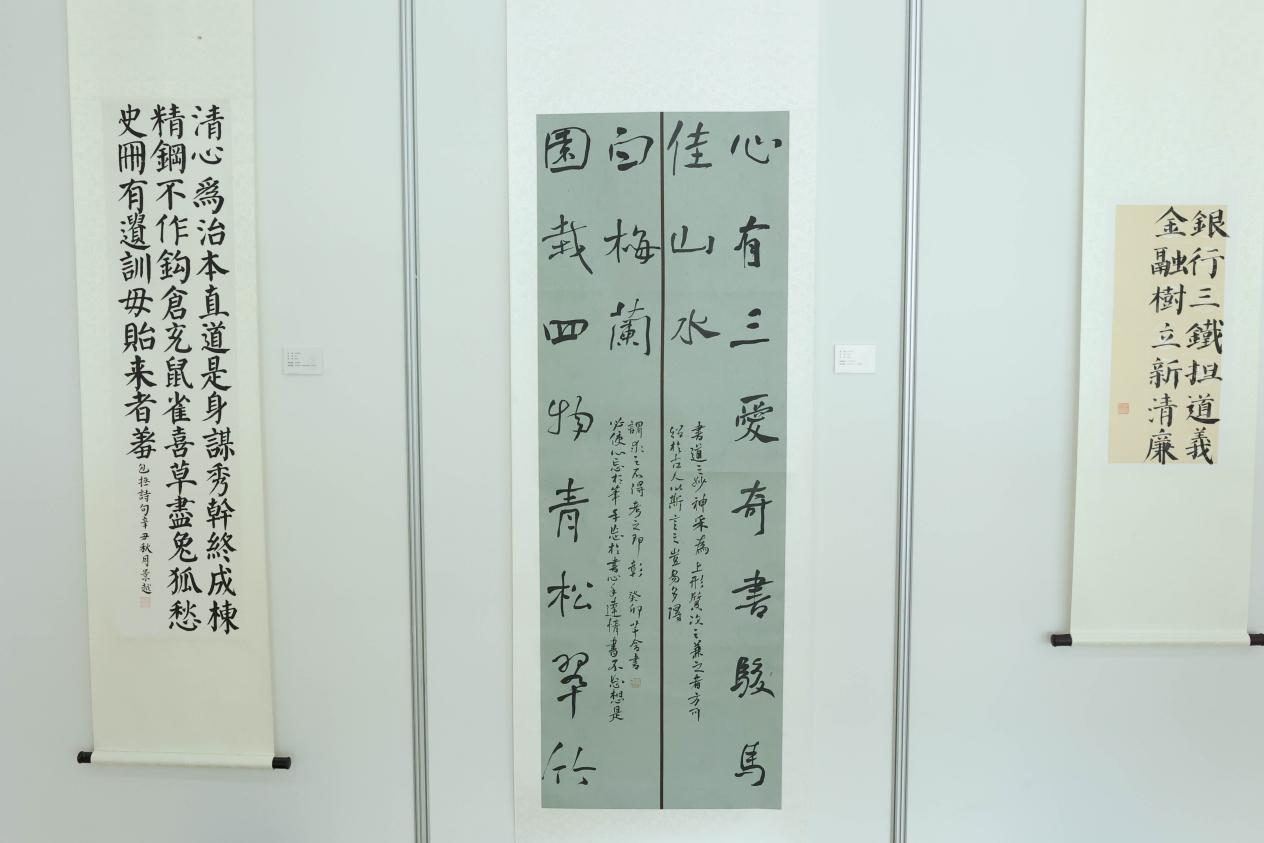 清心爲治本直道是身謀秀幹終成棟
精鋼不作鈎倉充鼠雀喜草盡兔狐愁
史冊有遺訓毋貽来者羞
包拯詩句辛丑秋月景越
心有三愛奇書駿馬
佳山水
書道之妙神采為上形質次之兼之者方可
紹於古人以斯言之豈易多得
園栽四物青松翠竹
白梅蘭
必使心忘於筆手忘於書心手達情書不忘想是
謂求之不得考之即彰 癸卯 書
銀行三鐵担道義
金融樹立新清廉